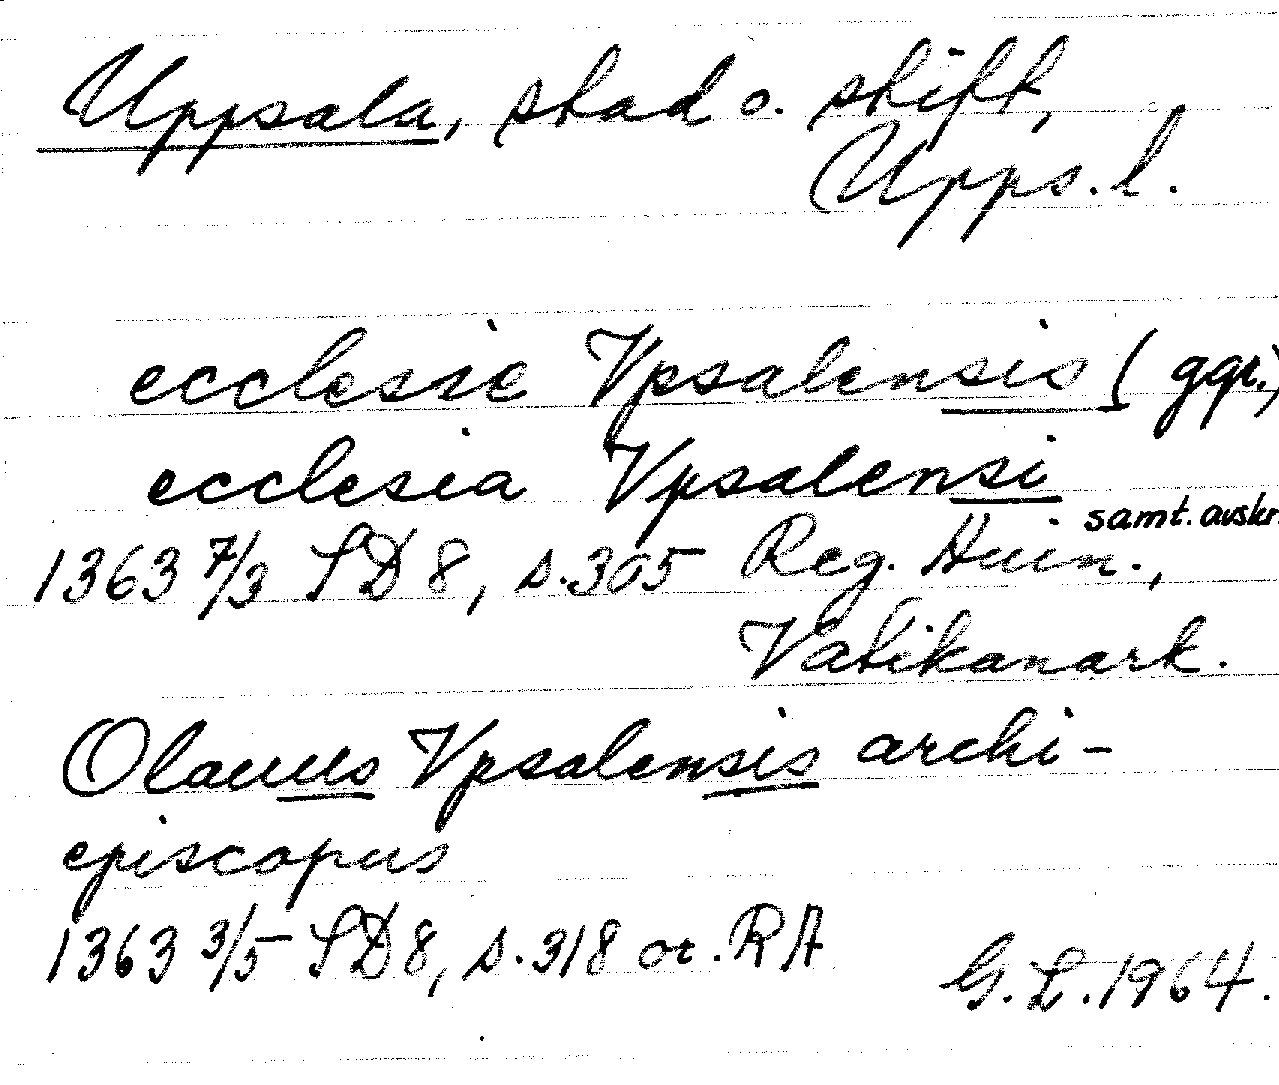 Uppsala, stad o. stift,
Upps. l.
ecclesie Vpsalensis (ggr.,
ecclesia Vpsalensi
samt. avskr.
1363 7/3 SD 8, s. 305 Reg. Auin.,
Vatikanark.
Olauus Vpsalensis archi-
episcopus
1363 3/5 SD 8, s. 318 or. RA
G. L. 1964.